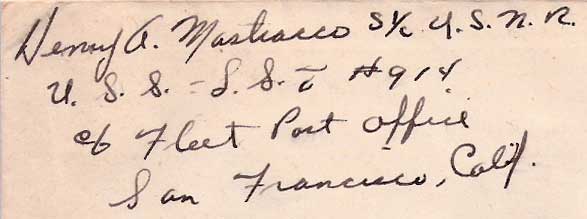 Henry A. Mastracco S 1/c U.S.N.R.
U.S.S. - L.S.T #914
c/o Fleet Post Office
San Francisco, Calif.